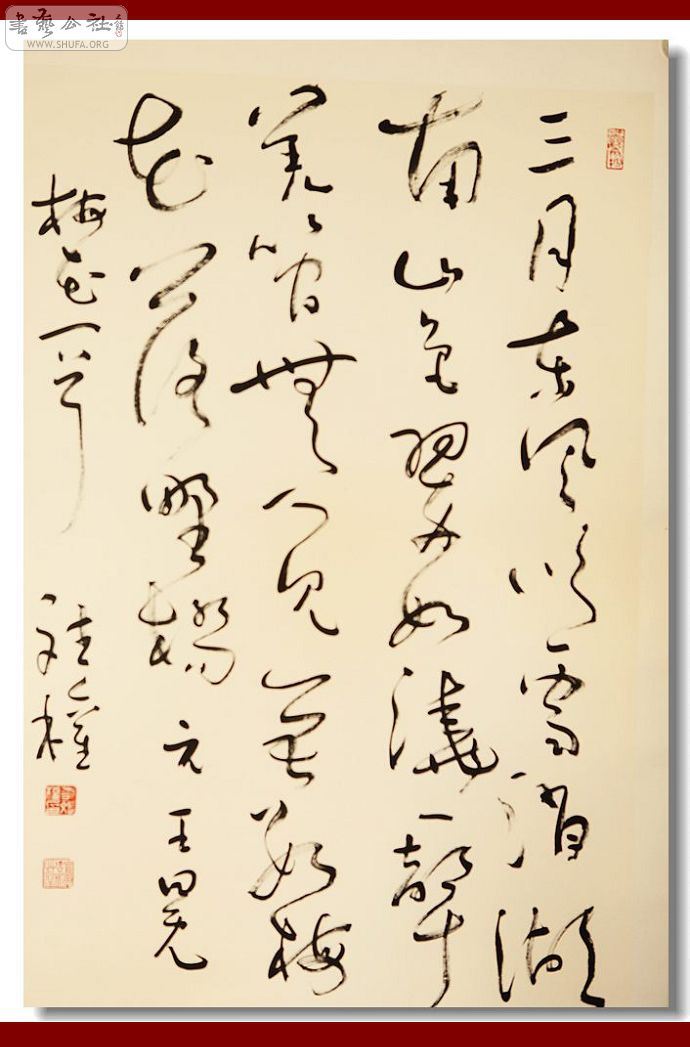 書藝公社
WWW.SHUFA.ORG
三月東風吹雪消湖
南山色翠如澆一聲
羌管無人見無數梅
花落野橋 元王冕
梅花一首
權